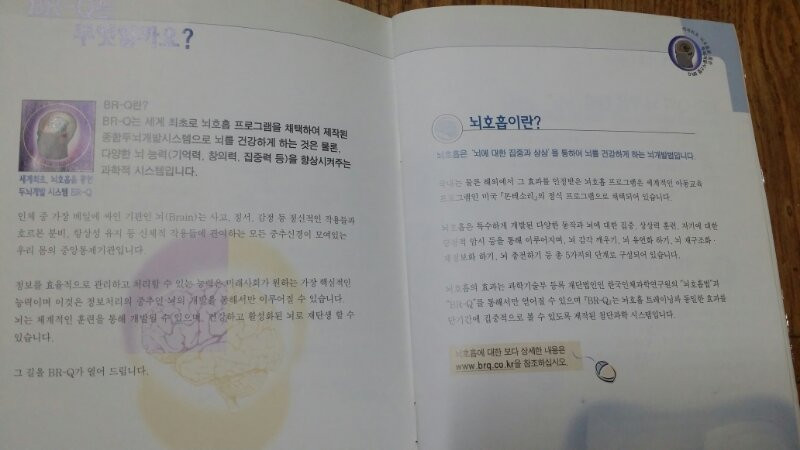 BR-Q란
무엇일까요?
BR-Q란?
BR-Q는 세계 최초로 뇌호흡 프로그램을 채택하여 제작된
종합두뇌개발시스템으로 뇌를 건강하게 하는 것은 물론,
다양한 뇌 능력(기억력, 창의력, 집중력 등)을 향상시켜주는
과학적 시스템입니다.
세계최초, 뇌호흡을 통한
두뇌개발 시스템 BR-Q
인체 중 가장 베일에 싸인 기관인 뇌(Brain)는 사고, 정서, 감정 등 정신적인 작용들과
호르몬 분비, 항상성 유지 등 신체적 작용들에 관여하는 모든 중추신경이 모여있는
우리 몸의 중앙통제기관입니다.
정보를 효율적으로 관리하고 처리할 수 있는 능력은 미래사회가 원하는 가장 핵심적인
능력이며 이것은 정보처리의 중추인 뇌의 개발을 통해서만 이루어질 수 있습니다.
뇌는 체계적인 훈련을 통해 개발될 수 있으며, 건강하고 활성화된 뇌로 재탄생 할 수
있습니다.
그 길을 BR-Q가 열어 드립니다.
뇌호흡이란?
뇌호흡은 '뇌에 대한 집중과 상상'을 통하여 뇌를 건강하게 하는 뇌개발법입니다.
국내는 물론 해외에서 그 효과를 인정받은 뇌호흡 프로그램은 세계적인 아동교육
프로그램인 미국 「몬테소리」의 정식 프로그램으로 채택되어 있습니다.
뇌호흡은 특수하게 개발된 다양한 동작과 뇌에 대한 집중, 상상력 훈련, 자기에 대한
긍정적 암시 등을 통해 이루어지며, 뇌 감각 깨우기, 뇌 유연화 하기, 뇌 재구조화·
재정보화 하기, 뇌 충전하기 등 총 5가지의 단계로 구성되어 있습니다.
뇌호흡의 효과는 과학기술부 등록 재단법인인 한국인체과학연구원의 "뇌호흡법"과
"BR-Q"를 통해서만 얻어질 수 있으며 「BR-Q」는 뇌호흡 트레이닝과 동일한 효과를
단기간에 집중적으로 볼 수 있도록 제작된 첨단과학 시스템입니다.
뇌호흡에 대한 보다 상세한 내용은
www.brq.co.kr을 참조하십시오.